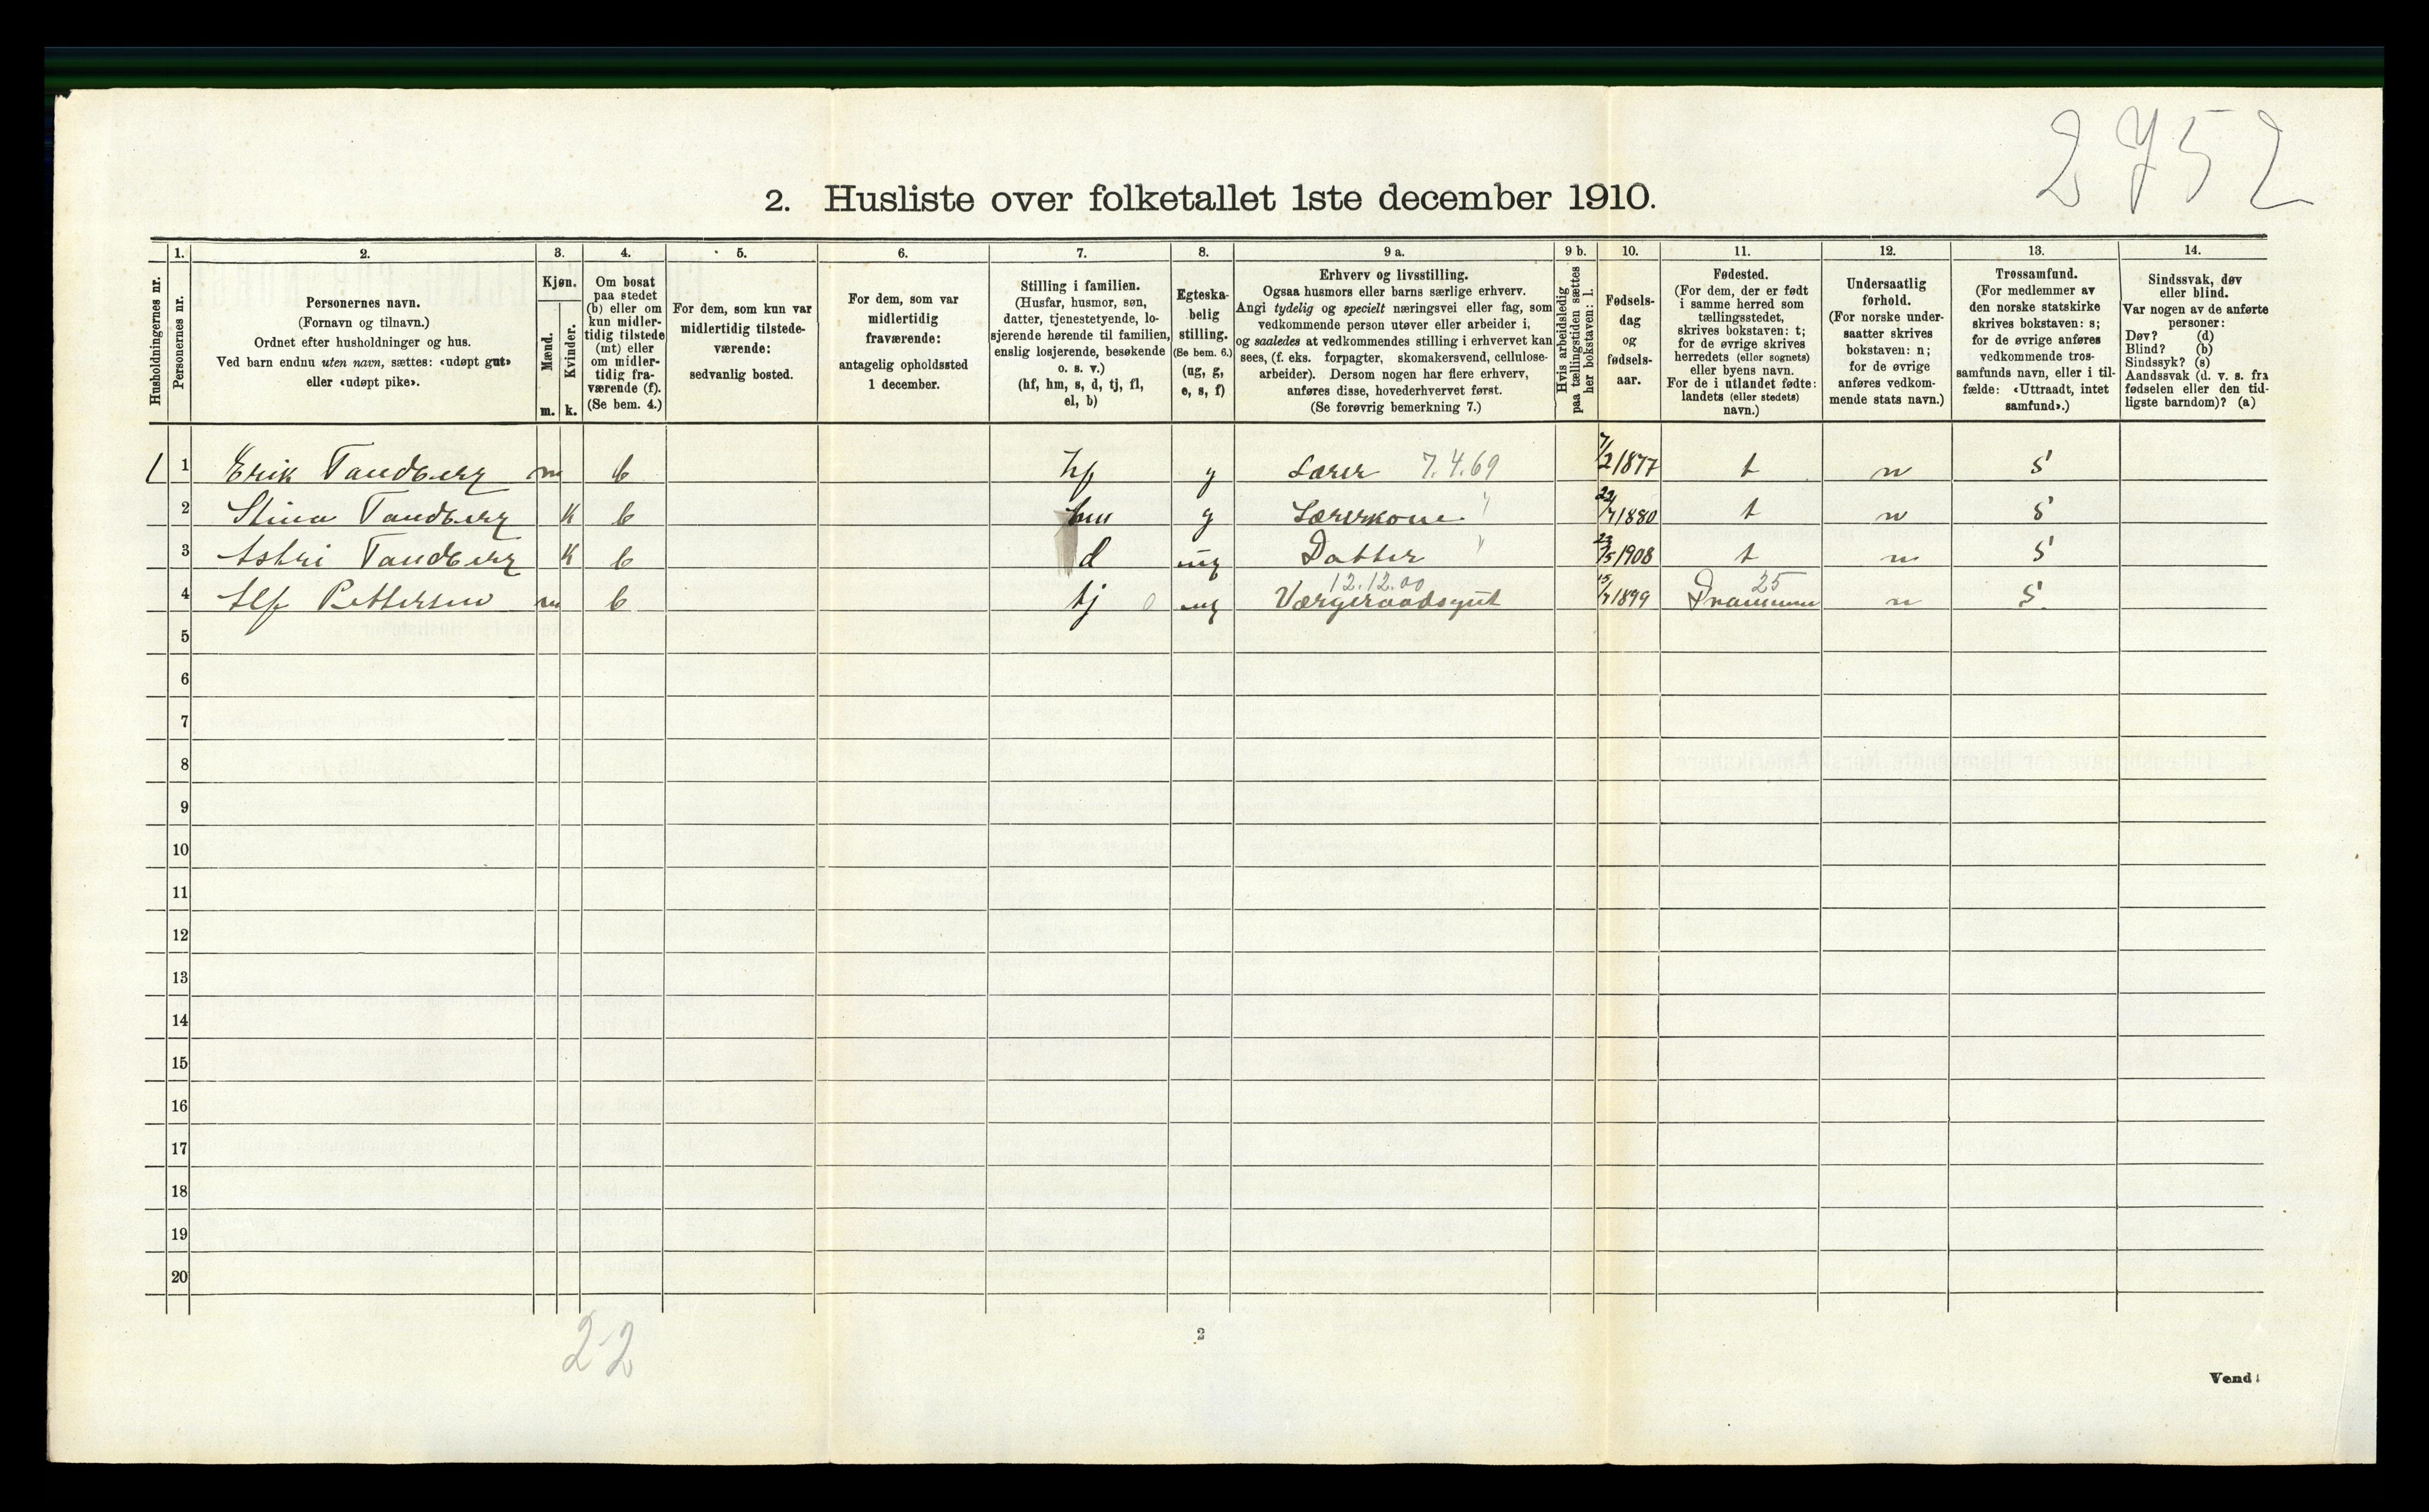 2752
2. Husliste over folketallet 1ste december 1910.
Husholdningernes nr.
1.
Personernes nr.
2.
Personernes navn.
(Fornavn og tilnavn.)
Ordnet efter husholdninger og hus.
Ved barn endnu uten navn, sættes: «udøpt gut»
eller «udøpt pike».
3.
Kjøn.
Mænd.
Kvinder.
m. k.
4.
Om bosat
paa stedet
(b) eller om
kun midler-
tidig tilstede
(mt) eller
om midler-
tidig fra-
værende (f).
(Se bem. 4.)
5.
For dem, som kun var
midlertidig tilstede-
værende:
sedvanlig bosted.
6.
For dem, som var
midlertidig
fraværende:
antagelig opholdssted
1 december.
7.
Stilling i familien.
(Husfar, husmor, søn,
datter, tjenestetyende, lo-
sjerende hørende til familien,
enslig losjerende, besøkende
o. s. v.)
(hf, hm, s, d, tj, fl,
el, b)
8.
Egteska-
belig
stilling.
(Se bem. 6.)
(ug, g,
e, s, f)
9 a.
Erhverv og livsstilling.
Ogsaa husmors eller barns særlige erhverv.
Angi tydelig og specielt næringsvei eller fag, som
vedkommende person utøver eller arbeider i,
og saaledes at vedkommendes stilling i erhvervet kan
sees, (f. eks. forpagter, skomakersvend, cellulose-
arbeider). Dersom nogen har flere erhverv,
anføres disse, hovederhvervet først.
(Se forøvrig bemerkning 7.)
9 b.
Hvis arbeidsledig
paa tællingstiden sættes
her bokstaven: l.
10.
Fødsels-
dag
og
fødsels-
aar.
11.
Fødested.
(For dem, der er født
i samme herred som
tællingsstedet,
skrives bokstaven: t;
for de øvrige skrives
herredets (eller sognets)
eller byens navn.
For de i utlandet fødte:
landets (eller stedets)
navn.)
12.
Undersaatlig
forhold.
(For norske under-
saatter skrives
bokstaven: n;
for de øvrige
anføres vedkom-
mende stats navn.)
13.
Trossamfund.
(For medlemmer av
den norske statskirke
skrives bokstaven: s;
for de øvrige anføres
vedkommende tros-
samfunds navn, eller i til-
fælde: «Uttraadt, intet
samfund».)
14.
Sindssvak, døv
eller blind.
Var nogen av de anførte
personer:
Døv? (d)
Blind? (b)
Sindssyk? (s)
Aandssvak (d. v. s. fra
fødselen eller den tid-
ligste barndom)? (a)
1 1 Erik Tandberg m b hf g Lærer 7.4.69 7/2 1877 t n s
2 Stina Tandberg k b hm g Lærerkone " 1880 t n s
3 Astri Tandberg k b d ug Datter " 23/5 1908 t n s
12.12.00 25
4 Alf Pettersen m b tj 0 ug Værgeraadsgut 1899 Drammen n s.
5
6
7
8
9
10
11
12
13
14
15
16
17
18
19
20
22
2
Vend!